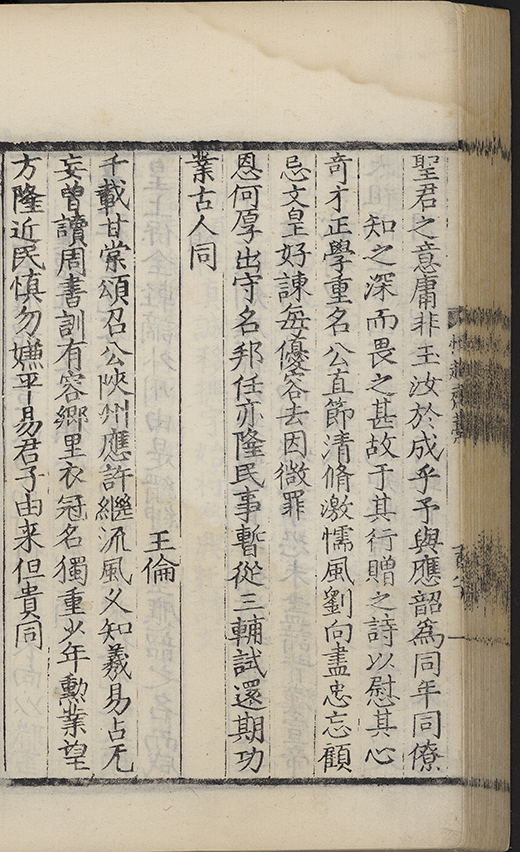 聖君之意庸非玉汝於成乎予與應韶爲同年同僚
知之深而畏之甚故于其行贈之詩以慰其心
竒才正學重名公直節清脩激懦風劉向盡忠忘顧
忌文皇好諫每優容去因微罪
恩何厚出守名邦任亦隆民事暫從三輔試還期功
業古人同
王倫
千載甘棠頌召公陝州應許繼流風乂知羲易占无
妄曽讀周書訓有容鄉里衣冠名獨重少年勲業望
方隆近民慎勿嫌平易君子由来但貴同